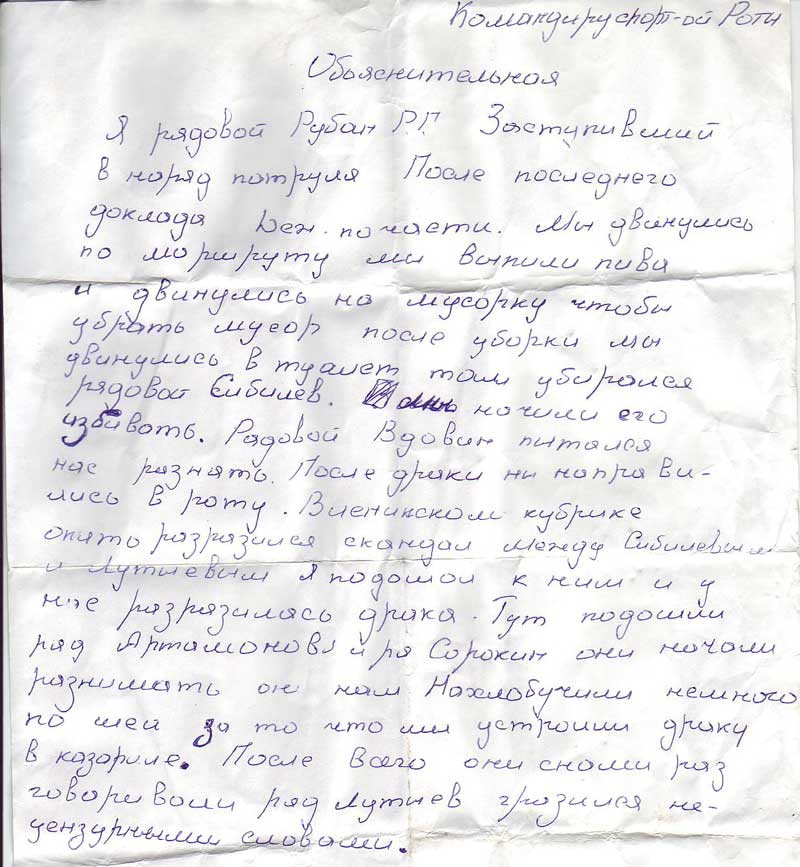 Командиру спорт-ой Роты
Обьяснительная
Я рядовой Рубан Р.Г. Заступивший
в наряд потруля После последнего
доклада Деж. по части. Мы двинулись
по моршруту мы выпили пива
и двинулись на мусорку чтобы
убрать мусор после уборки мы
двинулись в туалет там убирался
рядовой Сибилев. начили его
избивать. Рядовой Вдовин пытался
нас разнять. После драки ни напрови-
лись в роту. В кубрике
опять разразился скандал между Сибилевым
и Лутиевым Я подошол к ним и у
нас разразилась драка. Тут подошли
ряд Артамонов и ря Сорокин они начали
разнимать он нам Нахлобучили немного
по шеи за то что мы устроили драку
в казарме. После всего они снами раз
говоривали ряд Лутиев грозился не-
цензурными словами.